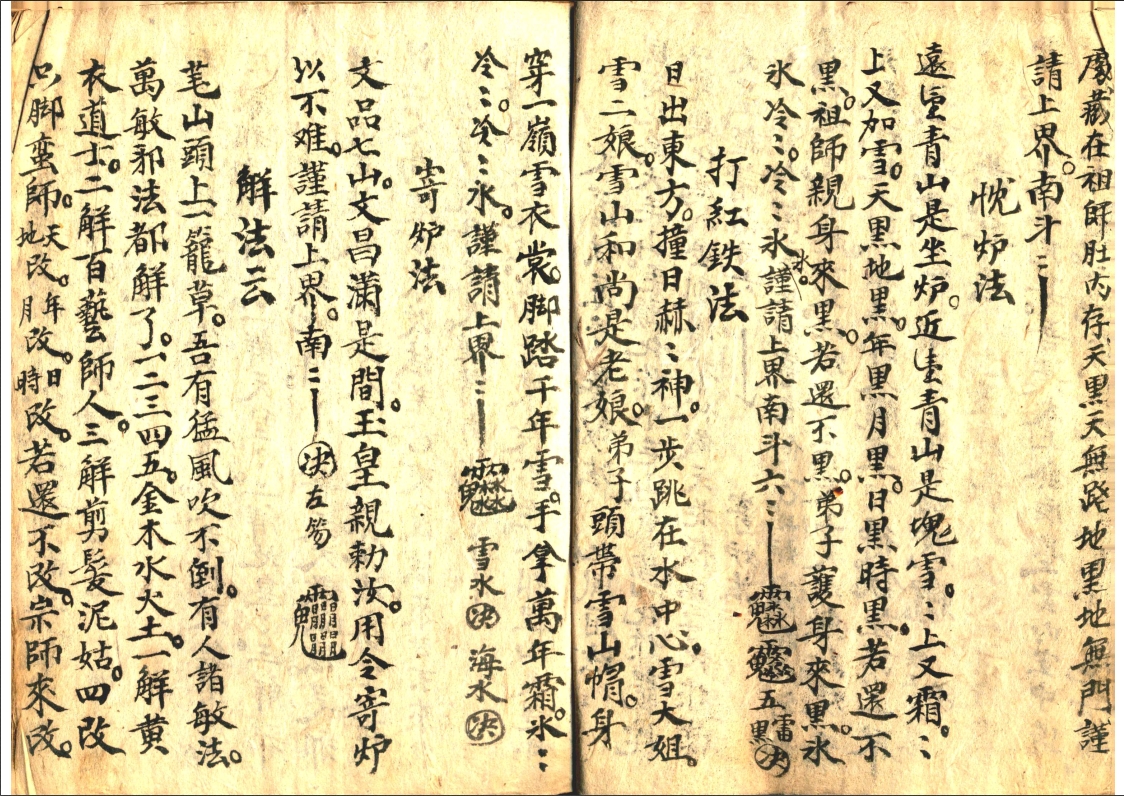 藏在祖師肚内存天黑天無路地黑地無門謹
請上界。南斗〻
忱炉法
遠望青山是坐炉。近望青山是塊雪。〻上又霜。〻
上又加雪。天黑地黑。年黑月黑。日黑時黑。若還不
黑。祖師親身來黑。若還不黑。弟子護身來黑。氷
氷冷〻。冷〻氷氷。謹請上界南斗六〻 五雷黑决
打紅鉄法
日出東方。撞日赫〻神。一步跳在水中心。雪大姐。
雪二娘。雪山和尚是老娘。弟子頭帶雪山帽。身
穿一嶺雪衣裳。脚踏千年雪。手拿萬年霜。氷〻
冷〻。冷〻氷。謹請上界〻 雪水决 海水决
寄炉法
文品七山。文昌滿是間。玉皇親勅汝。用令寄炉
以不难。謹請上界。南〻 决左
解法云
茅山頭上一籠草。吾有猛風吹不倒。有人諸敏法。
萬敏邪法都解了。一二三四五。金木水火土。一解黄
衣道士。二解百藝師人。三解剪髮泥姑。四改
只脚蛮師。天改。地改。年改。月改。日改。時改。若還不改。宗師來改。